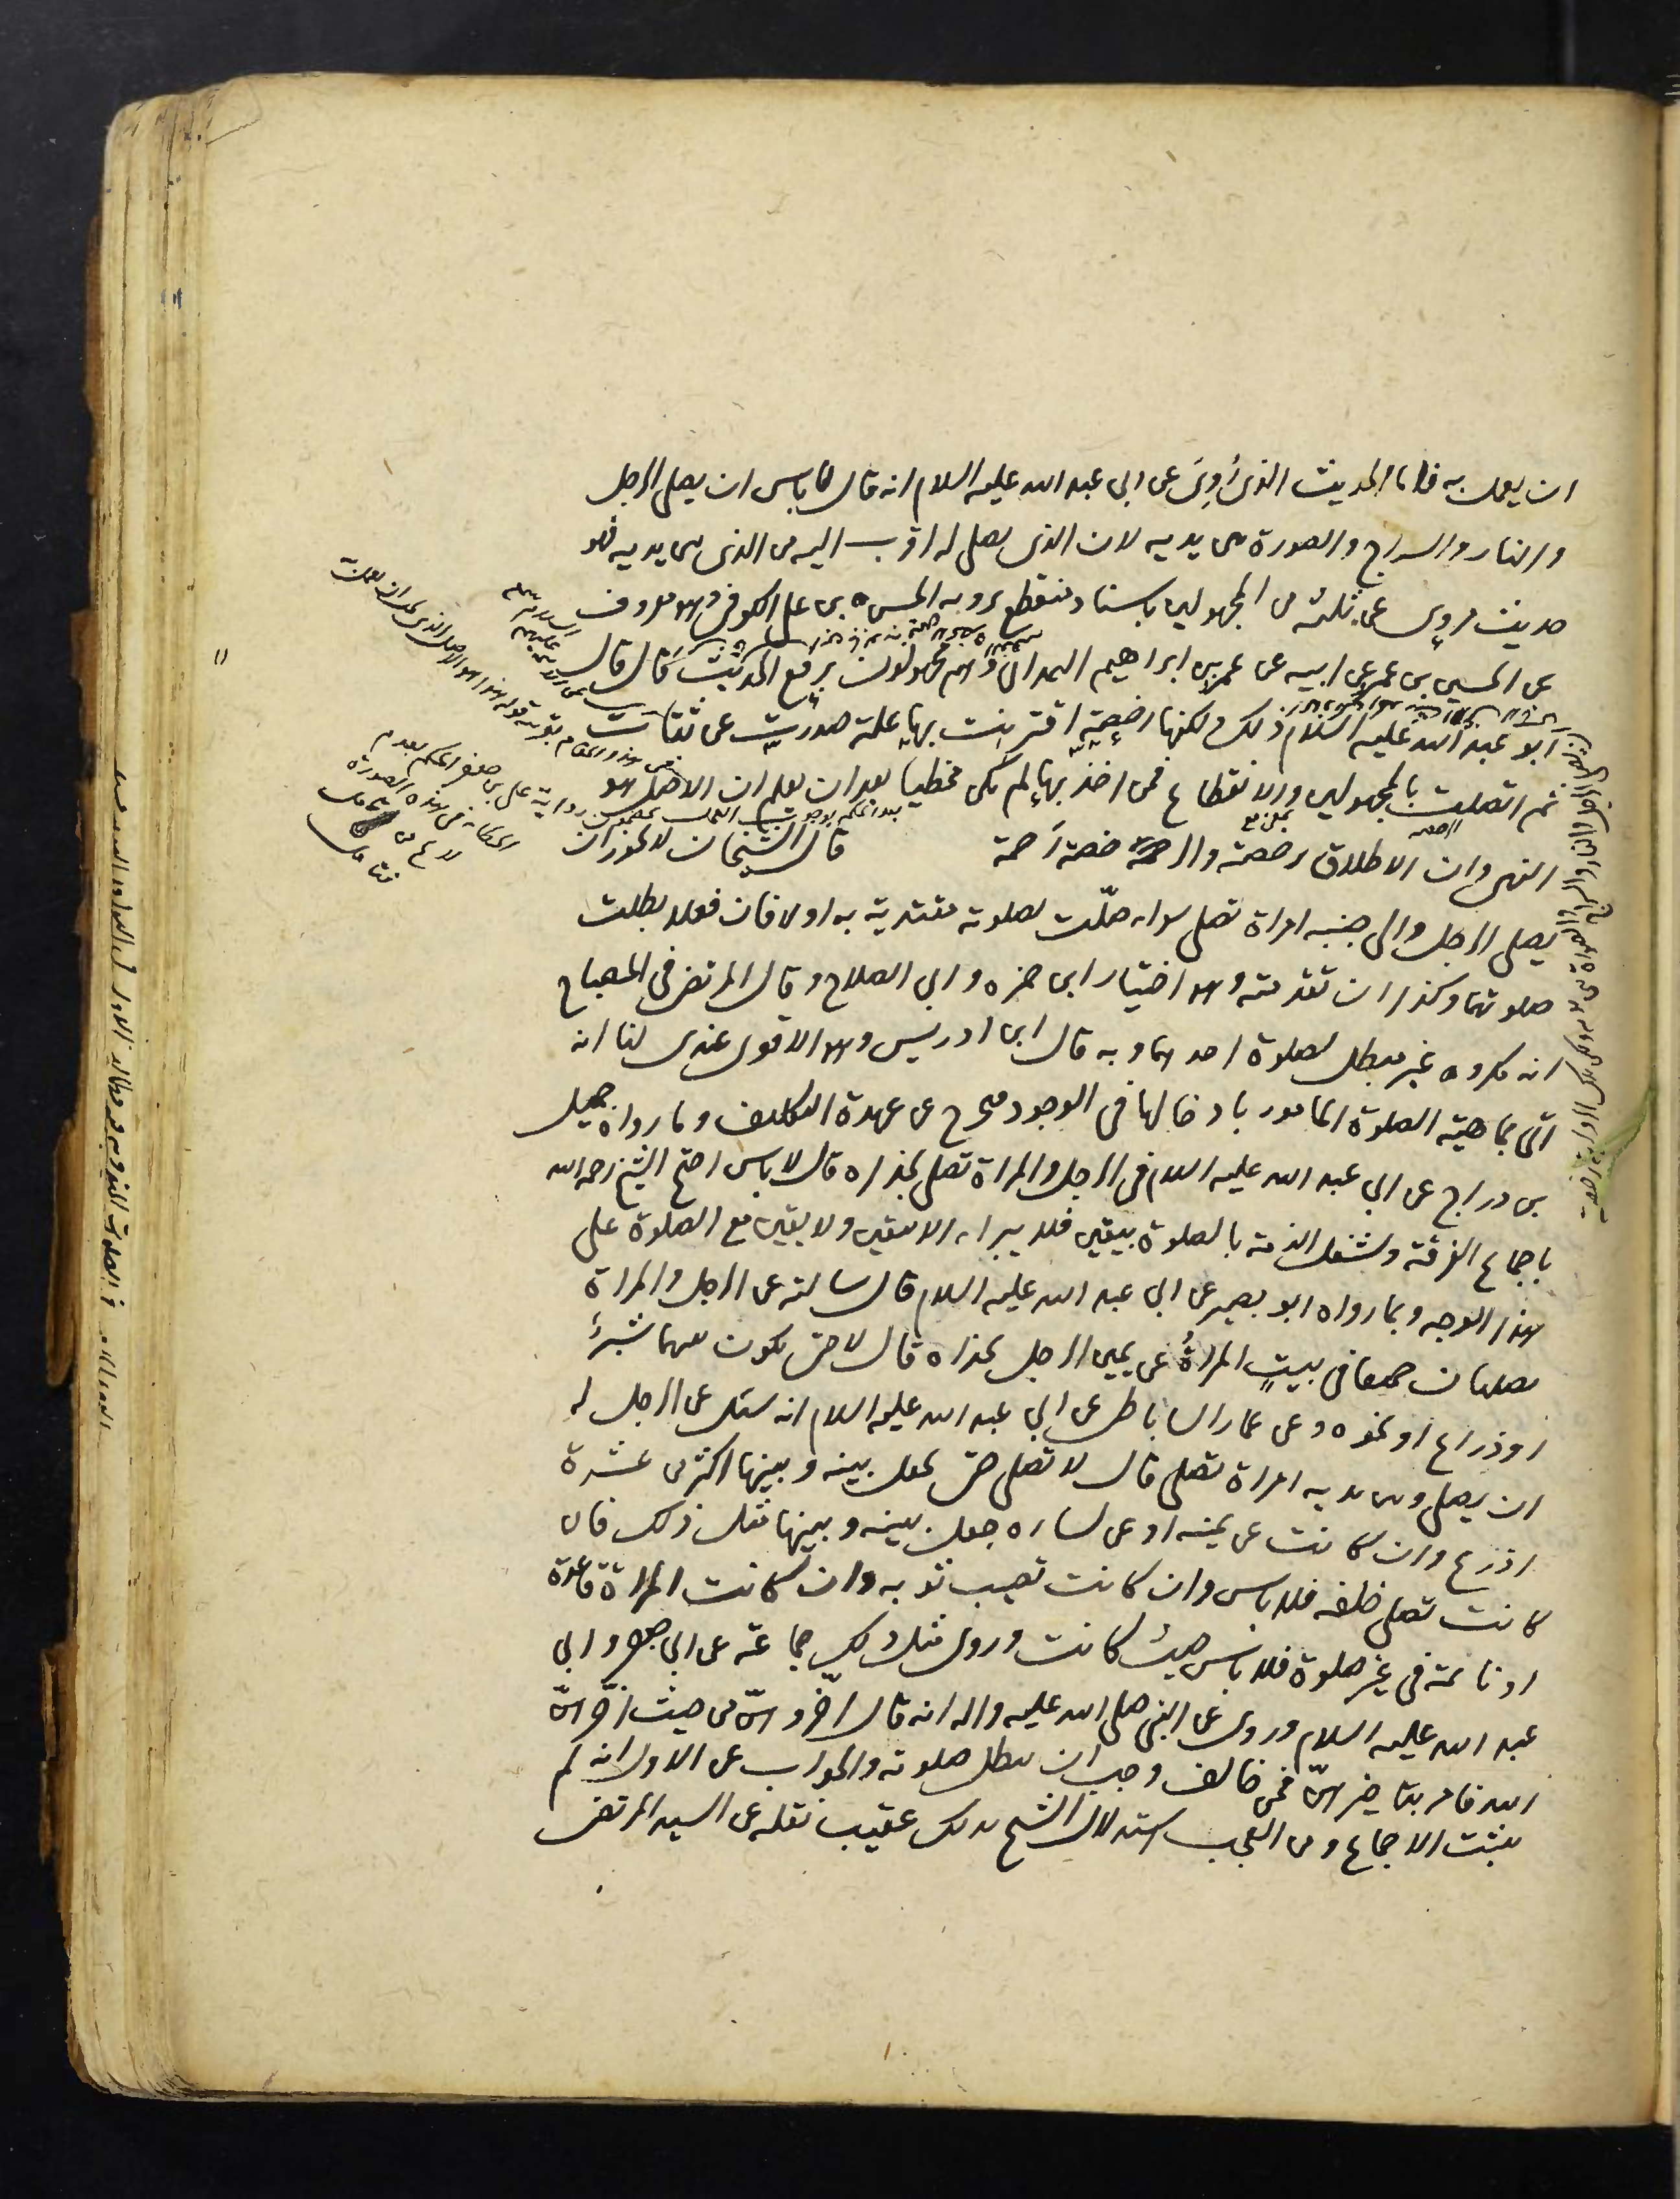 ان يعمل به فاما الحديث الذى روى عن ابى عبد الله عليه السلام انه قال لا باس ان يصلى الرجل
والنار والسراج والصورة بين يديه لان الذى يصلى له اقرب اليه من الذى بين يديه فهو
حديث مروى عن ثلثة من المجهولين باسناد منقطع يرويه الحسن بن على الكوفى وهو معروف
عن الحسين بن عمرو عن ابيه عن عمرو بن ابراهيم الهمدانى وهم مجهولون يرفع الحديث قال قال
ابو عبد الله عليه السلام ذلك ولكنها رخصة اقترنت بها علة صدرت عن ثقات
ثم اتصلت بالمجهولين والانقطاع فمن اخذ بها لم يكن مخطيا بعد ان يعلم ان الاصل هو
النهى وان الاطلاق رخصة والرخصة رحمة قال الشيخان لا يجوز ان
يصلى الرجل والى جنبه امراة تصلى سواء صلّت بصلوته مقتدية به او لا فان فعلا بطلت
صلوتهما وكذا ان تقدمته وهو اختيار ابن حمزه وابى الصلاح وقال المرتضى فى المصباح
انه مكروه غير مبطل لصلوة احدهما وبه قال ابن ادريس وهو الاقوى عندى لنا انه
اتى بماهية الصلوة المامور بادخالها فى الوجود فيخرج عن عهدة التكليف وما رواه جميل
بن دراج عن ابى عبد الله عليه السلام فى الرجل والمراة تصلى بحذاه قال لا باس احتج الشيخ رحمه الله
باجماع الفرقة وشغل الذمة بالصلوة بيقين فلا يبرا الا بيقين ولا يقين مع الصلوة على
هذا الوجه وبما رواه ابو بصير عن ابى عبد الله عليه السلام قال سالته عن الرجل والمراة
يصليان جميعا فى بيت المراة عن يمين الرجل بحذاه قال لا حتى يكون بينهما شبر
او ذراع او نحوه وعن عمار الساباطى عن ابى عبد الله عليه السلام انه سئل عن الرجل له
ان يصلى وبين يديه امراة تصلى قال لا تصلى حتى يجعل بينه وبينها اكثر من عشرة
اذرع وان كانت عن يمينه او عن يساره جعل بينه وبينها مثل ذلك فان
كانت تصلى خلفه فلا باس وان كانت تصيب ثوبه وان كانت المراة قاعدة
او نائمة فى غير صلوة فلا باس حيث كانت وروى مثل ذلك جماعة عن ابى جعفر وابى
عبد الله عليه السلام وروى عن النبى صلى الله عليه واله انه قال اخروهن من حيث اخرهن
الله فامر بتاخيرهن فمن خالف وجب ان يبطل صلوته والجواب عن الاول انه لم
يثبت الاجماع ومن العجب استدلال الشيخ بذلك عقيب نقله عن السيد المرتضى